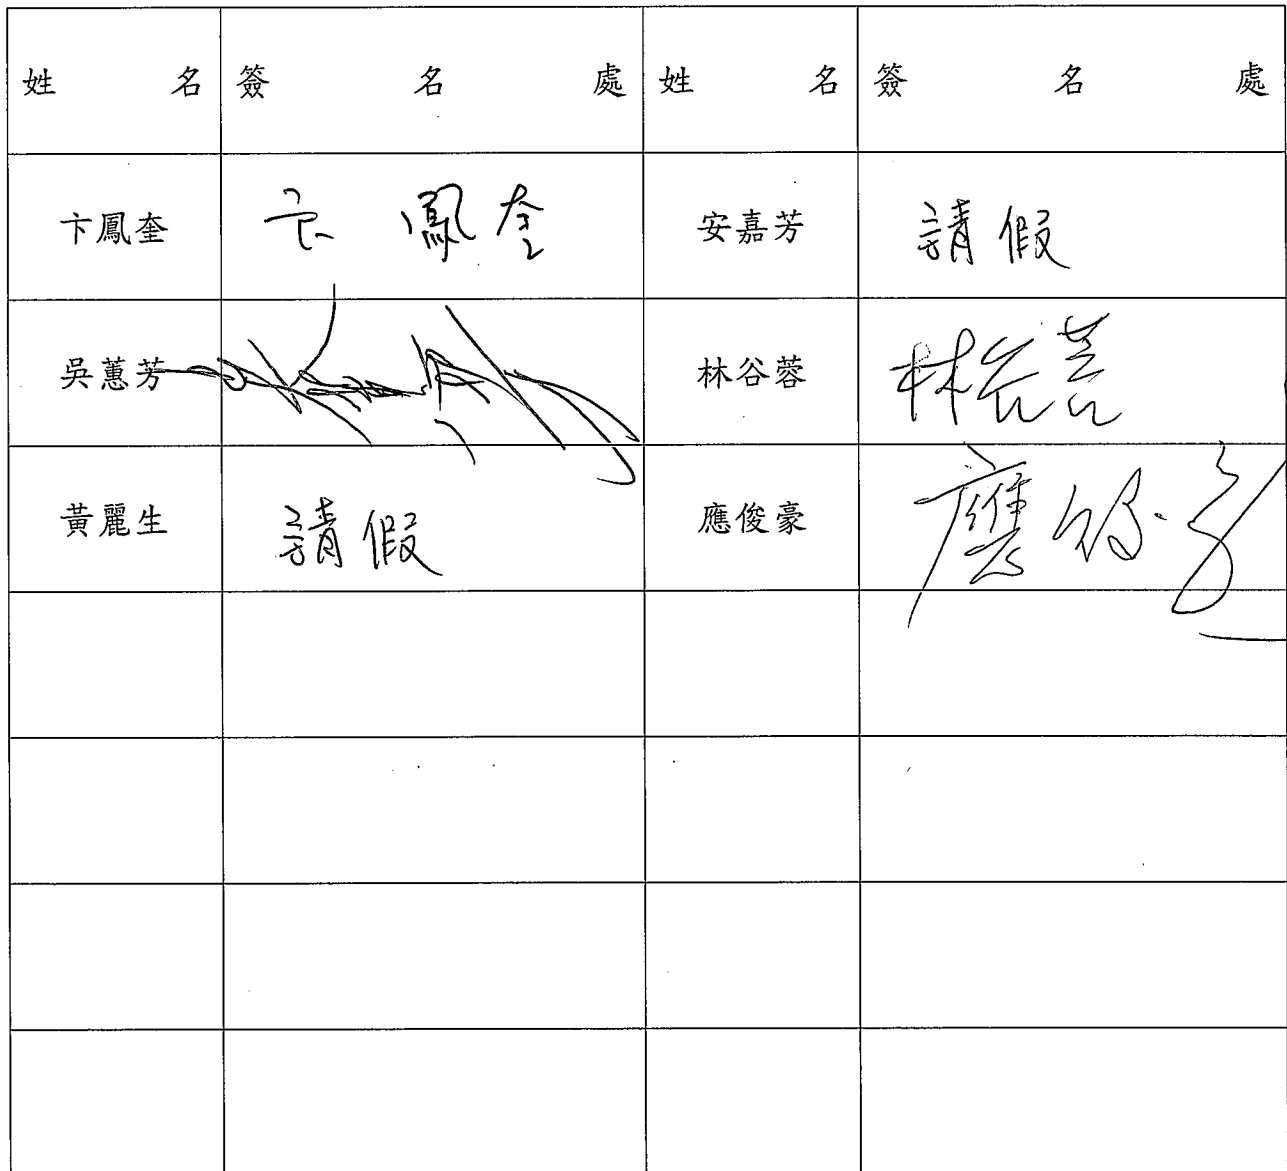 姓名 簽名處 姓名 簽名處
卞鳳奎 卞鳳奎 安嘉芳 請假
吳蕙芳 林谷蓉 林谷蓉
黃麗生 請假 應俊豪 應俊豪